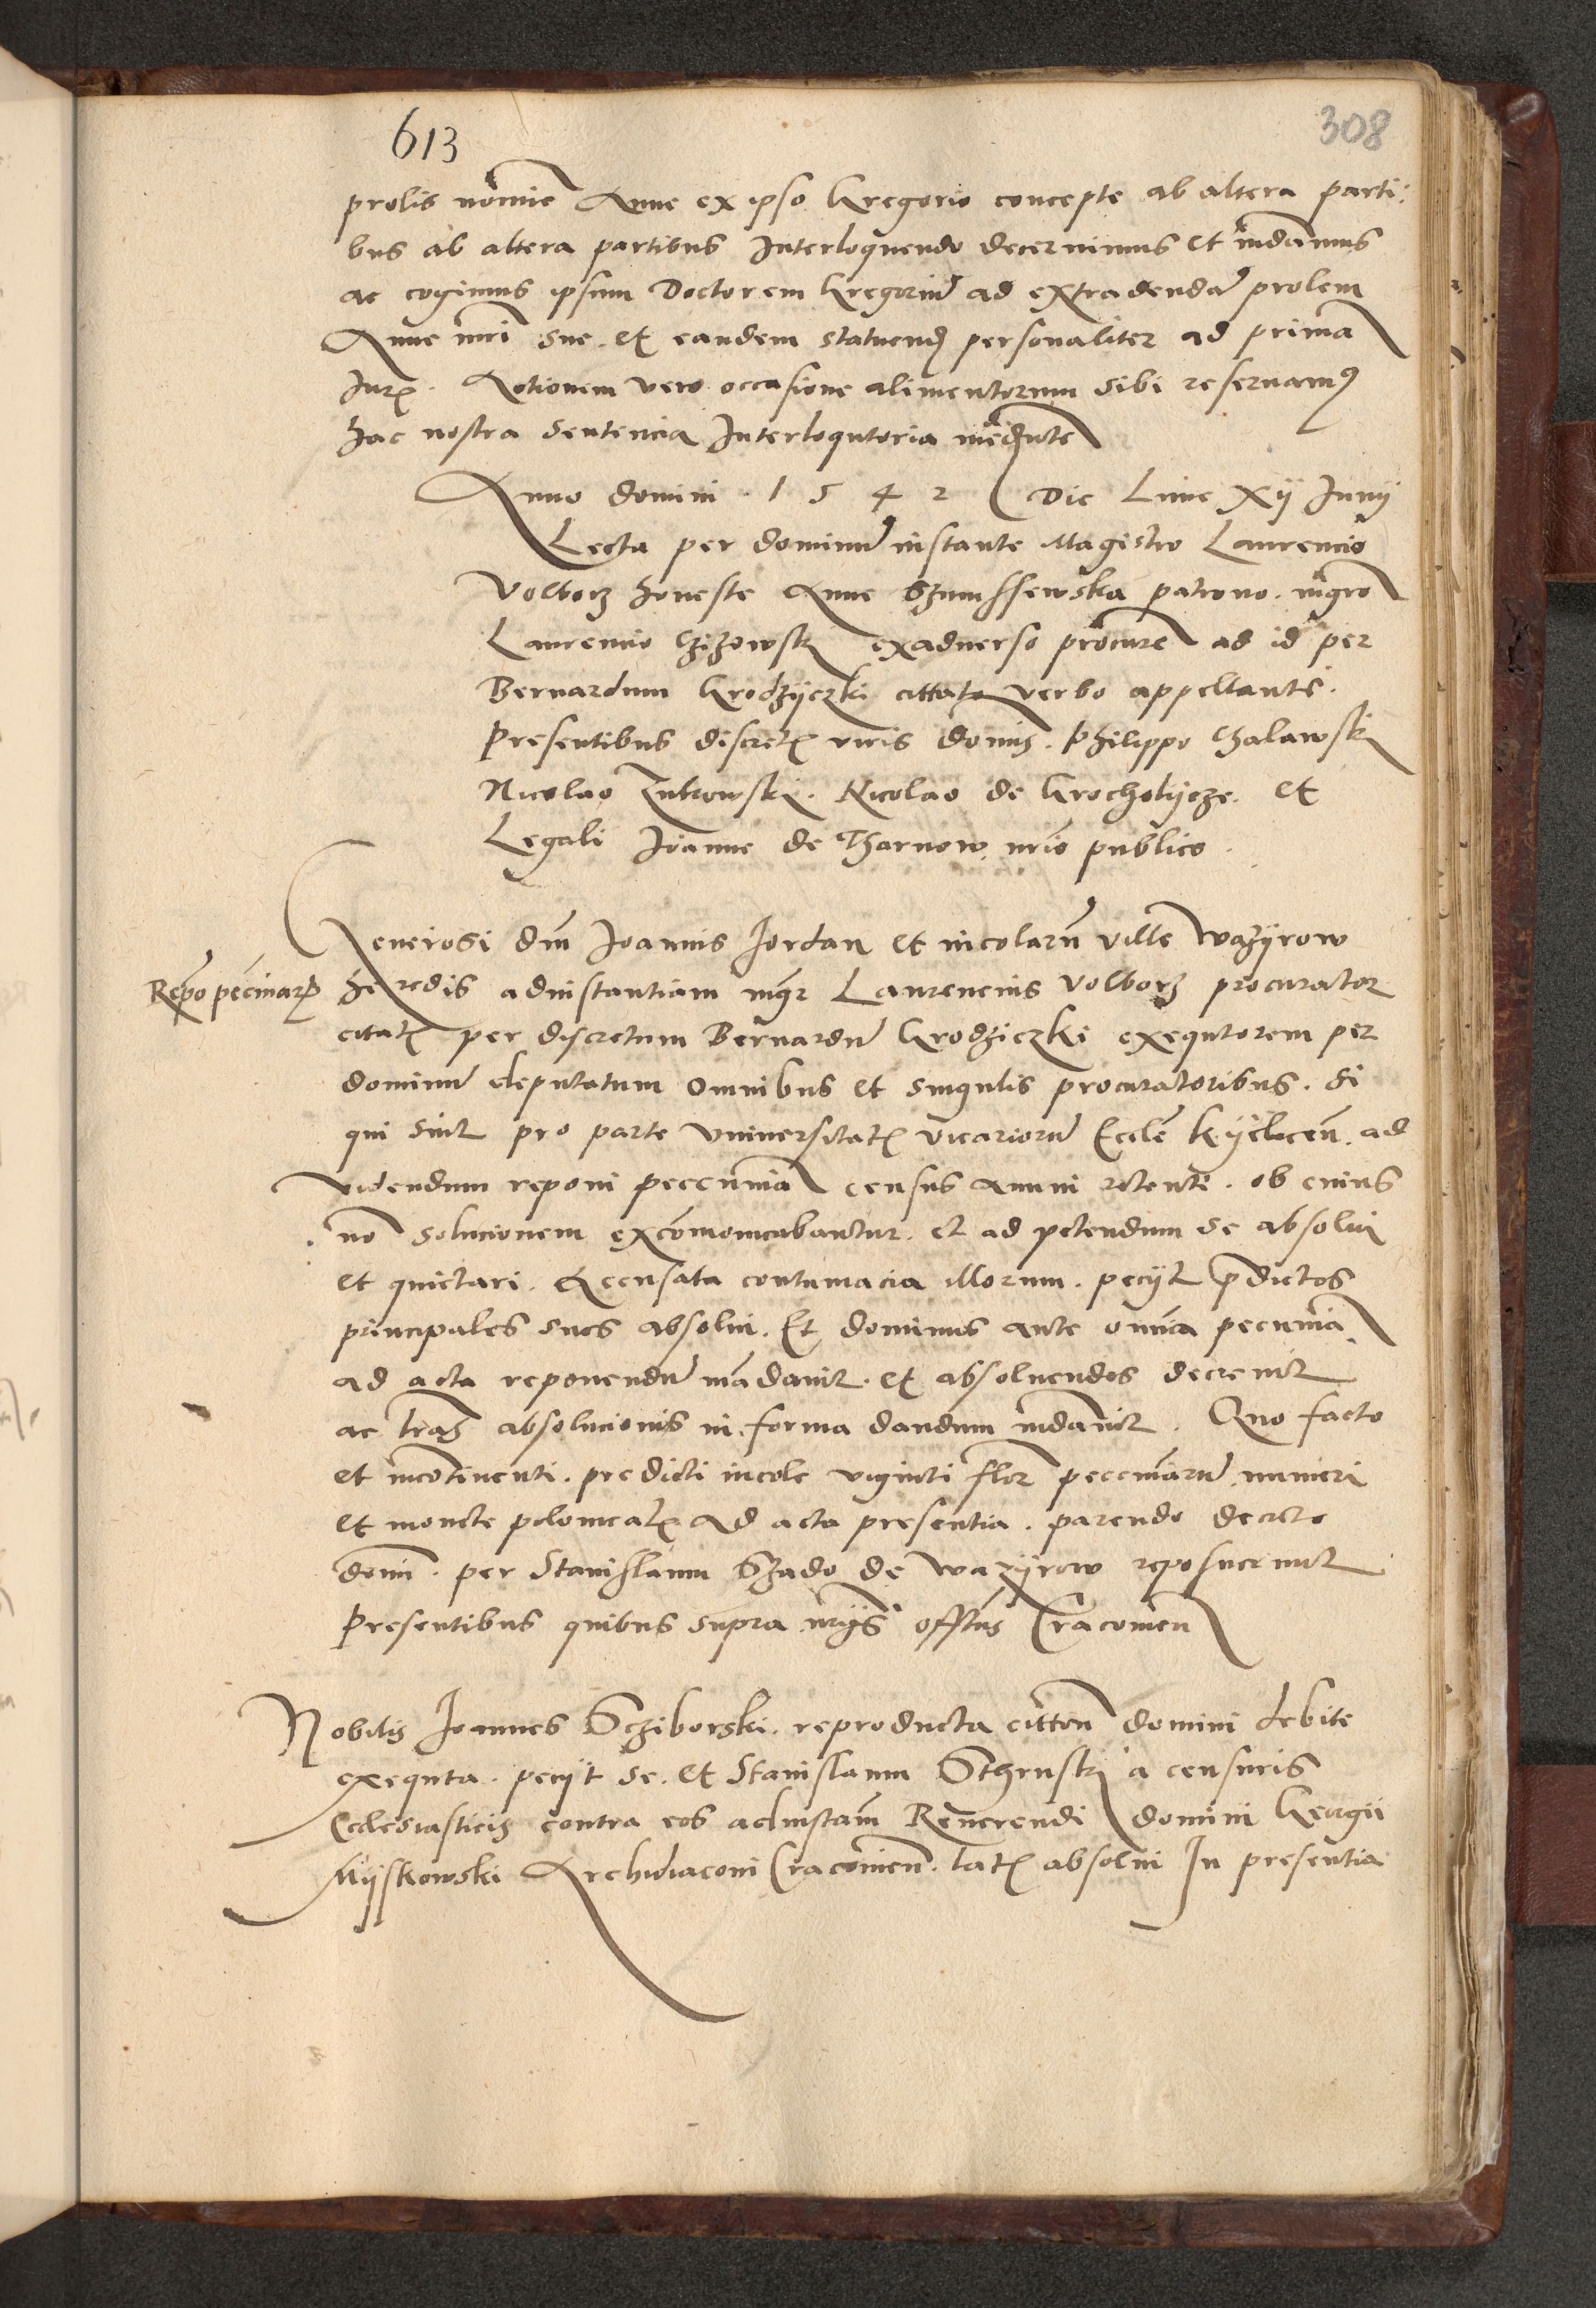 613
308
prolis nomine Anne ex ipso Gregorio concepte ab altera parti:
bus ab altera partibus Interloquendo decernimus et mdamus
ac cogimus ipsum Doctorem Gregoriu ad extradenda prolem
Anne mri sue. et eandem statuend personaliter ad prima
Jur. Actionem vero occasione alimentorum sibi reservam9
hac nostra sentencia Interloqutoria mediante
Anno domini 1542 Die Lune xij Junij
Lecta per dominu instante Magistro Laurencio
Volborz honeste Anne patrono. mgro
Laurencio exadverso procure ad id per
Bernardum Grodzijczki cittato verbo appellante.
Presentibus discret viris domis. Philippo Chalawski
Nicolao Nicolao de Grocholijcze. et
Legali Joanne de Tharnow nrio publico.
Generosi dni Joannis Jordan et incolaru ville Wazijrow
Repo pecuniar
heredis adinstantiam mgr Laurencius Volborz procurator
citat per discretum Bernardu Grodziczki exequtorem per
dominu deputatum omnibus et singulis procuratoribus. Si
qui sint pro parte universitat vicarioru Eccle Kijelcen. ad
videndum reponi peccunia census annui retenti. ob cuius
no solucionem excomonicabantur. et ad petendum se absolui
et quietari. Accusata contumacia illorum. peciit pdictos
principales suos absolui. Et dominus ante omnia pecunia
ad acta reponendu madauit. et absoluendos decreuit
ac lras absolucionis in forma dandum mdauit. Quo facto
et incotinenti. predicti incole viginti flor peccuniaru numeri
et monete polonicat ad acta presentia. parendo decreto
domi. per Stanislaum Szado de Wazijrow reposuerunt
Presentibus quibus supra nrijs officus Cracouien
Nobilis Joannes Scziborski. reproducta citton domini debite
exequta. peciit se. et Stanislaum a censuris
Ecclesiasticis contra eos adinstam Reuerendi domini Georgii
Mijskowski Archidiaconi Cracouien. lat absolui In presentia